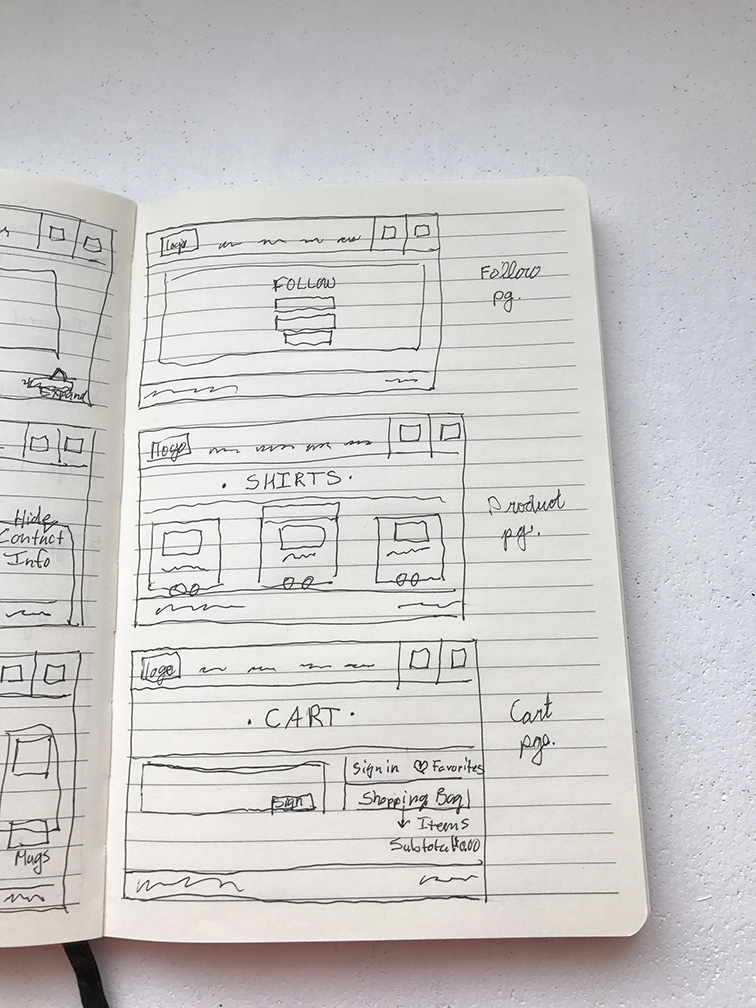 Expand
Hide
Contact
Info
Mugs
logo
FOLLOW
Follow
pg.
logo
· SHIRTS ·
Product
pg.
logo
· CART ·
Cart
pgs.
Sign in ♡ Favorites
Sign
Shopping Bag
↓ Items